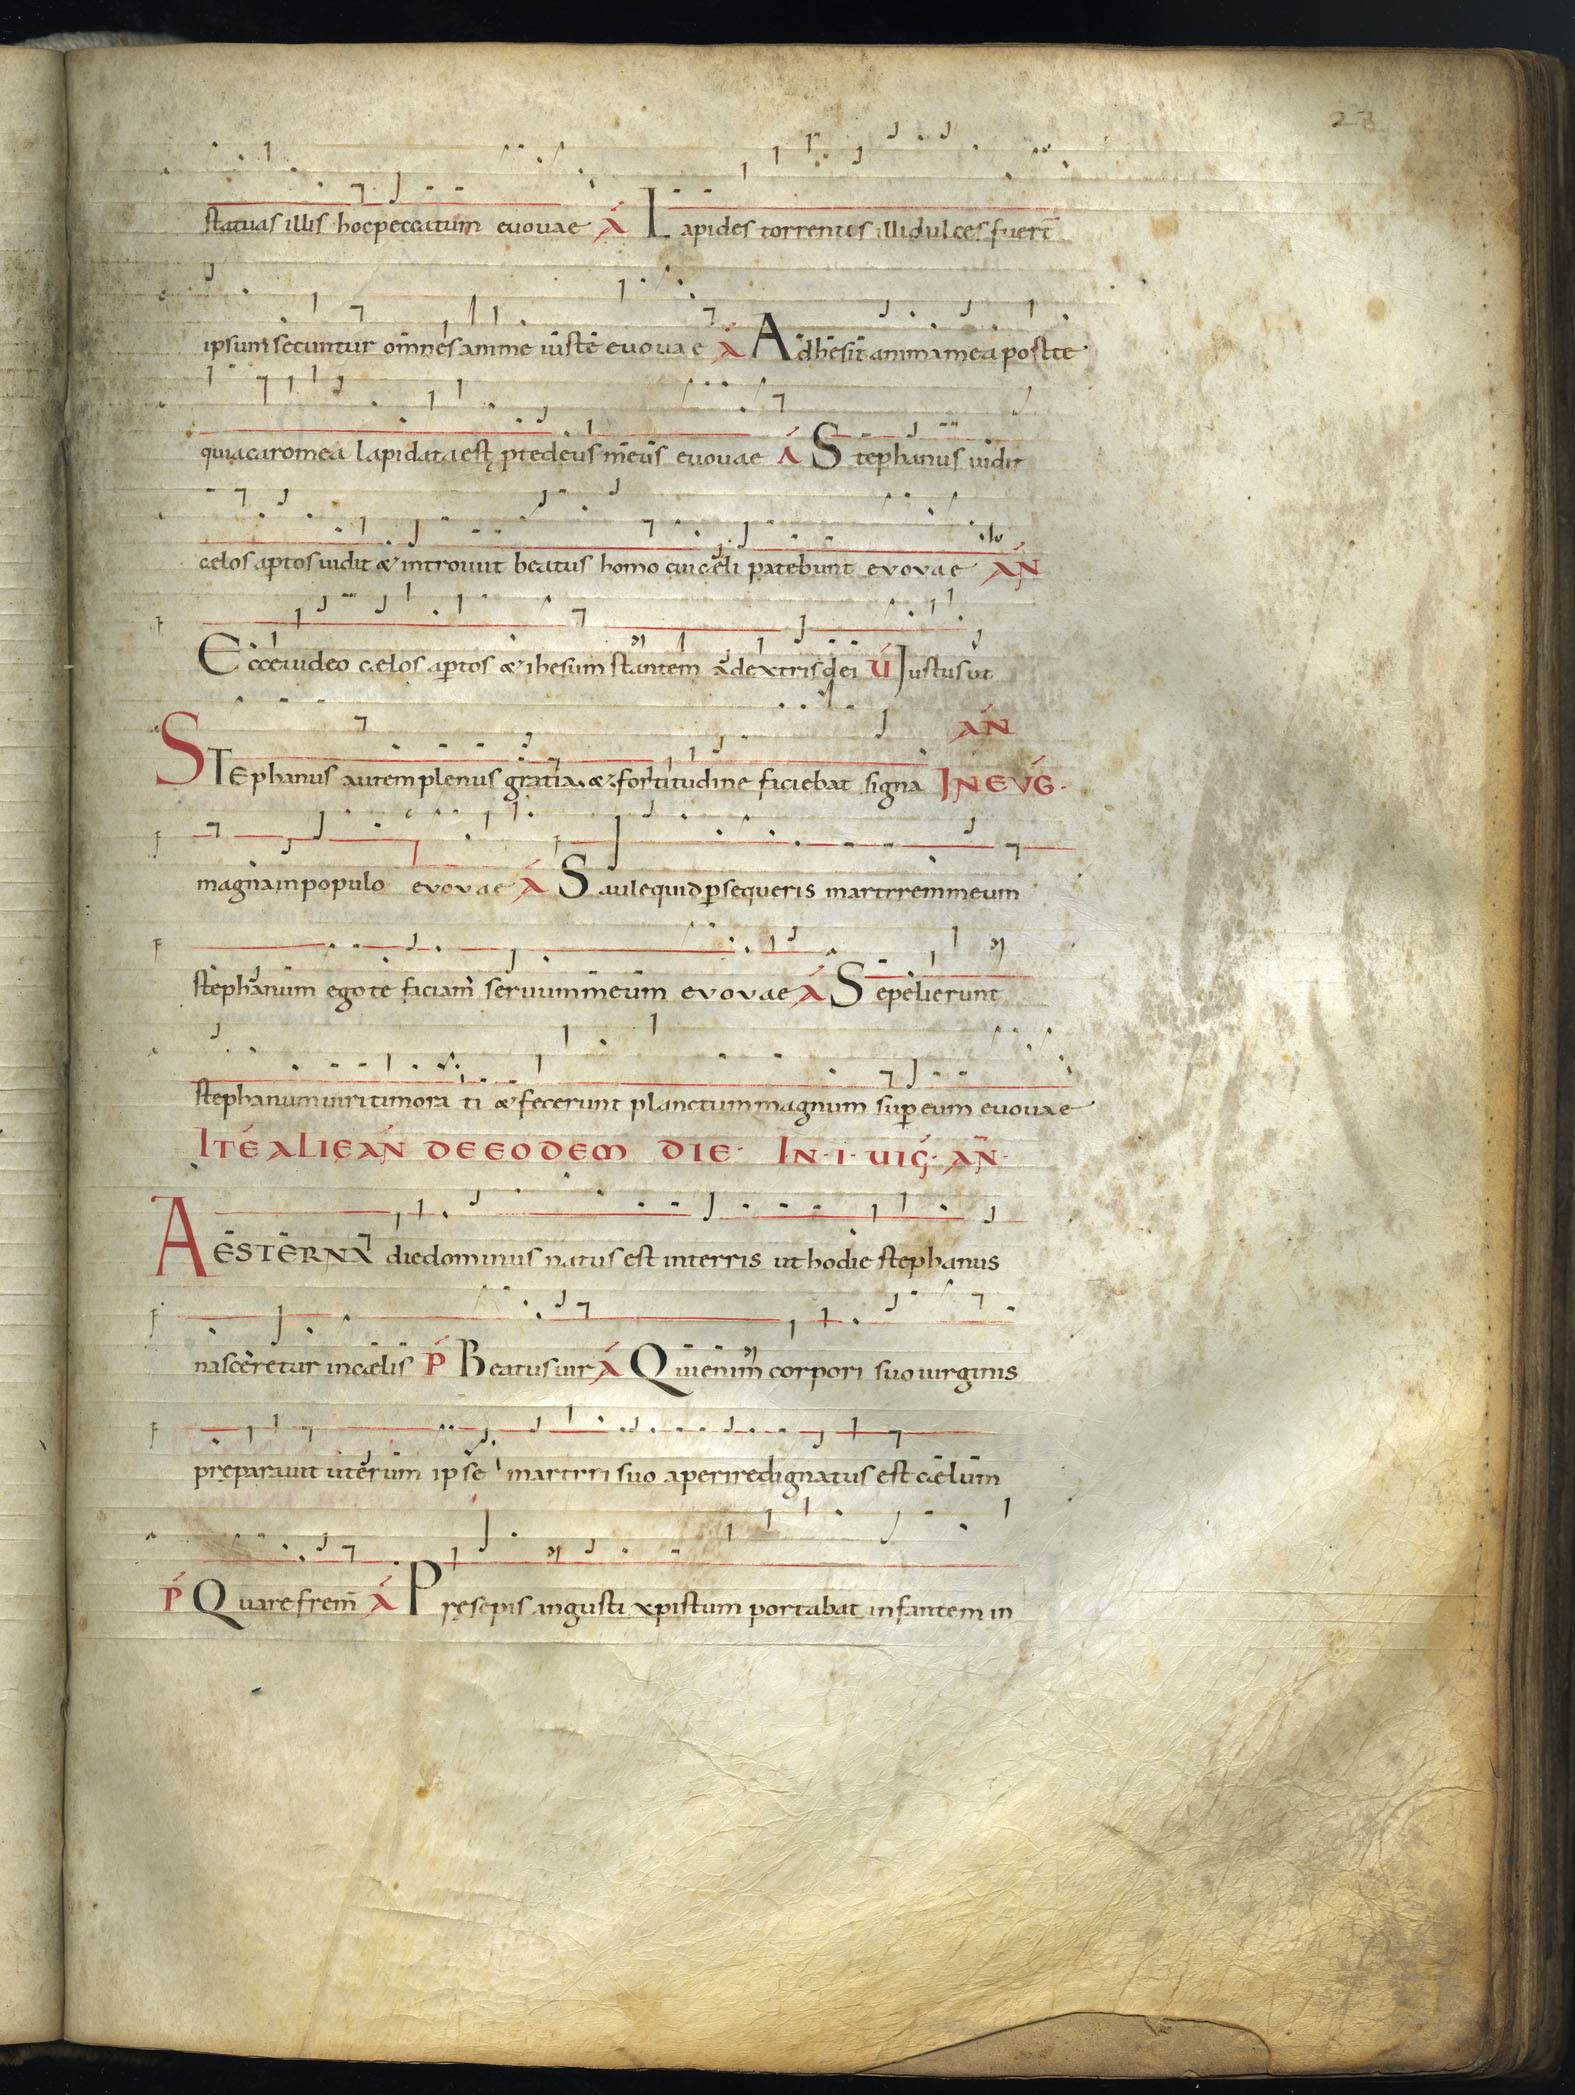 23
statuas illis hoc peccatum euouae Á Lapides torrentes illi dulces fuer̄t
ipsum secuntur omnes anime iuste euouae Á Adhesit anima mea post te
quia caro mea lapidata est p te deus meus euouae Á Stephanus uidit
celos aptos uidit & introiuit beatus homo cui celi patebunt euouae ÁN
Ecce uideo cælos aptos & ihesum stantem a dextris dei Ú Justus ut
ÁN
STEphanus autem plenus gratia. &. fortitudine faciebat signa JN EVǴ.
magna in populo euouae Á Saule quid psequeris martirem meum
stephanum ego te faciam seruum meum euouae Á Sepelierunt
stephanum uiri timora ti & fecerunt planctum magnum sup eum euouae
ITÉ ALIE AŃ DE EODEM DIE. IN. I. UIǴ. AN̄.
AESTERNA die dominus natus est in terris ut hodie stephanus
nasceretur in cælis Ṕ Beatus uir Á Qui enim corpori suo uirginis
preparauit uterum ipse martiri suo aperire dignatus est cælum
Ṕ Quare frem̄ Á Presepis angusti xpistum portabat infantem in